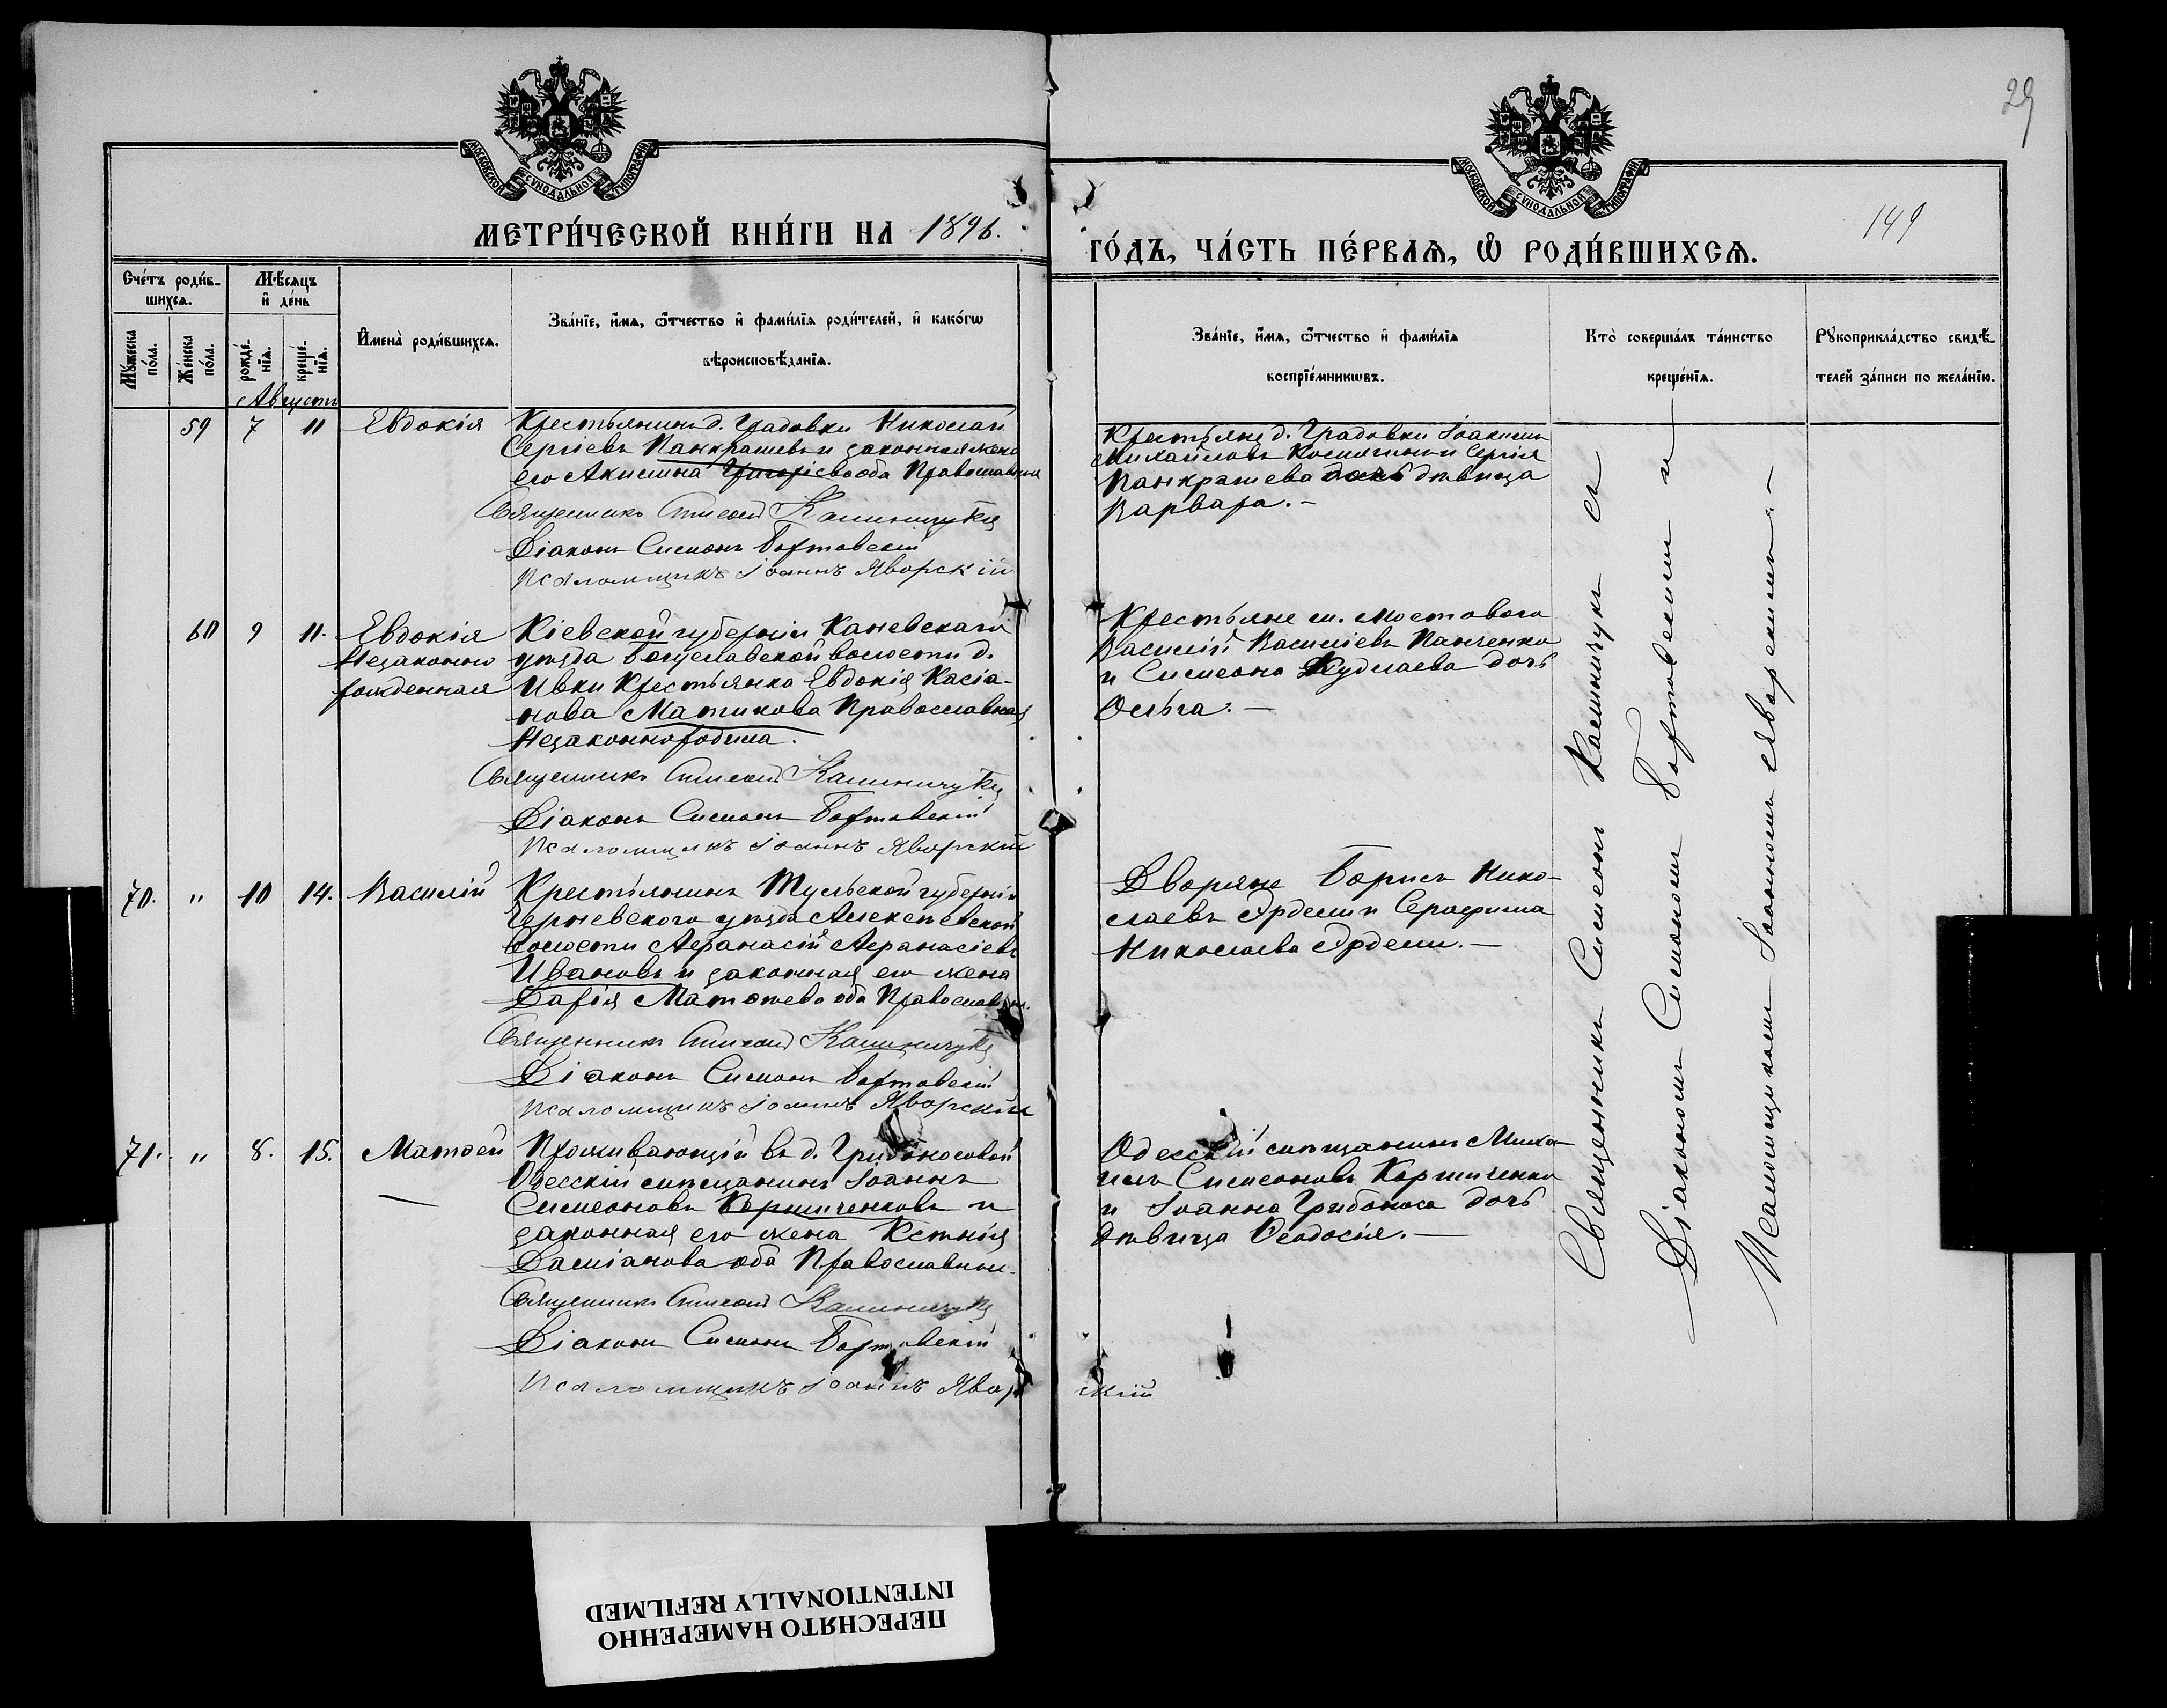 29
149
МОСКОВСКОЙ СѴНОДАЛЬНОЙ ТИПОГРАФІИ
МОСКОВСКОЙ СѴНОДАЛЬНОЙ ТИПОГРАФІИ
МЕТРИ́ЧЕСКОЙ КНИ́ГИ НА 1896.
ГО́ДЪ, ЧА́СТЬ ПЕ́РВАѦ, Ѽ РОДИ́ВШИХСѦ.
Сче́тъ роди́в-
шихсѧ.
Мꙋ́жеска по́ла.
Же́нска по́ла.
Мѣ́сѧцъ
и҆ де́нь
рожде́-
нїѧ.
креще́-
нїѧ.
И҆мена̀ роди́вшихсѧ.
Зва́нїе, и҆́мѧ, ѻ҆́тчество и҆ фами́лїѧ роди́телей, и҆ како́гѡ
вѣроисповѣ́данїѧ.
Зва́нїе, и҆́мѧ, ѻ҆́тчество и҆ фами́лїѧ
воспрїе́мникѡвъ.
Кто̀ соверша́лъ та́инство
креще́нїѧ.
Рꙋкоприкла́дство свидѣ́-
телей за́писи по жела́нїю.
Августъ
59 7 11 Евдокія
Крестьянинъ д. Градовки Николай
Сергіевъ Панкрашевъ и законная жена
его Акилина Григоріева оба Православные
Священникъ Симеонъ Калиничукъ
Діаконъ Симонъ Бортовскій
Псаломщикъ Іоаннъ Яворскій
Крестьяне д. Градовки Іоакимъ
Михайловъ и Сергія
Панкрашева дочь дѣвица
Варвара.-
60 9 11. Евдокія
Незаконно
рожденная
Кіевской губерніи Каневскаго
уѣзда Богуславской волости д.
Ивки Крестьянка Евдокія Касіа-
нова Матикова Православная
Незаконнородила.
Священникъ Симеонъ Калиничукъ
Діаконъ Симонъ Бортовскій
Псаломщикъ Іоаннъ Яворскій
Крестьяне м. Мостового
Василій Василіевъ Панченко
и Симеона Кудлаева дочь
Ольга.-
70. " 10 14. Василій
Крестьянинъ Тульской губерніи
Черневского уѣзда Алексѣевской
волости Аѳанасій Аѳанасіевъ
Ивановъ и законная его жена
Дарія Матѳеева оба Православные.
Священникъ Симеонъ Калиничукъ
Діаконъ Симонъ Бортовскій
Псаломщикъ Іоаннъ Яворскій
Дворяне Борисъ Нико-
лаевъ Эрдели и Серафима
Николаева Эрдели.-
71. " 8. 15. Матѳей
Проживающій въ д. Грибоносовой
Одесскій мѣщанинъ Іоаннъ
Симеоновъ Коршиченковъ и
законная его жена Ксенія
Даміанова оба Православные.
Священникъ Симеонъ Калиничукъ
Діаконъ Симонъ Бортовскій
Псаломщикъ Іоаннъ Яворскій
Одесскій мѣщанинъ Миха-
илъ Симеоновъ Коршиченко
и Іоанна Грибоноса дочь
дѣвица Ѳеодосія.-
Священникъ Симеонъ Калиничукъ съ
Діакономъ Симономъ Бортовскимъ и
Псаломщикомъ Іоанномъ Яворскимъ.-
ПЕРЕСНЯТО НАМЕРЕННО
INTENTIONALLY REFILMED